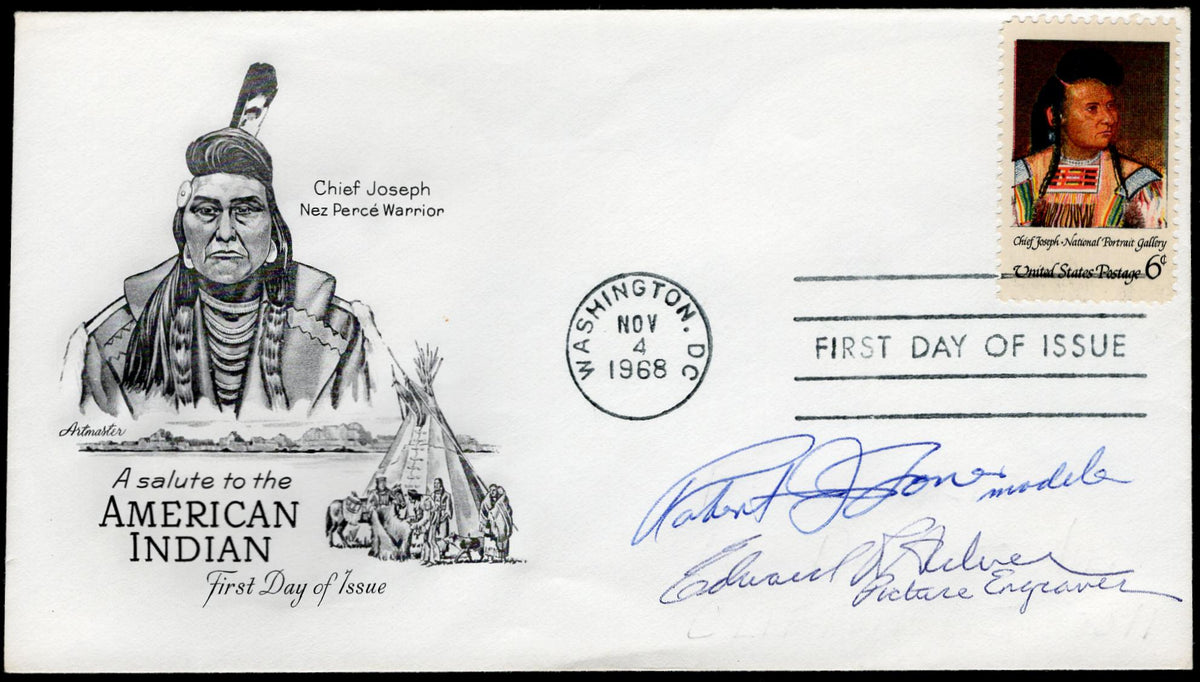 Chief Joseph
Nez Percé Warrior
Chief Joseph · National Portrait Gallery
United States Postage 6¢
WASHINGTON. DC
NOV
4
1968
FIRST DAY OF ISSUE
Artmaster
A salute to the
AMERICAN
INDIAN
First Day of Issue
Robert J Jones modeler
Edward
Picture Engraver